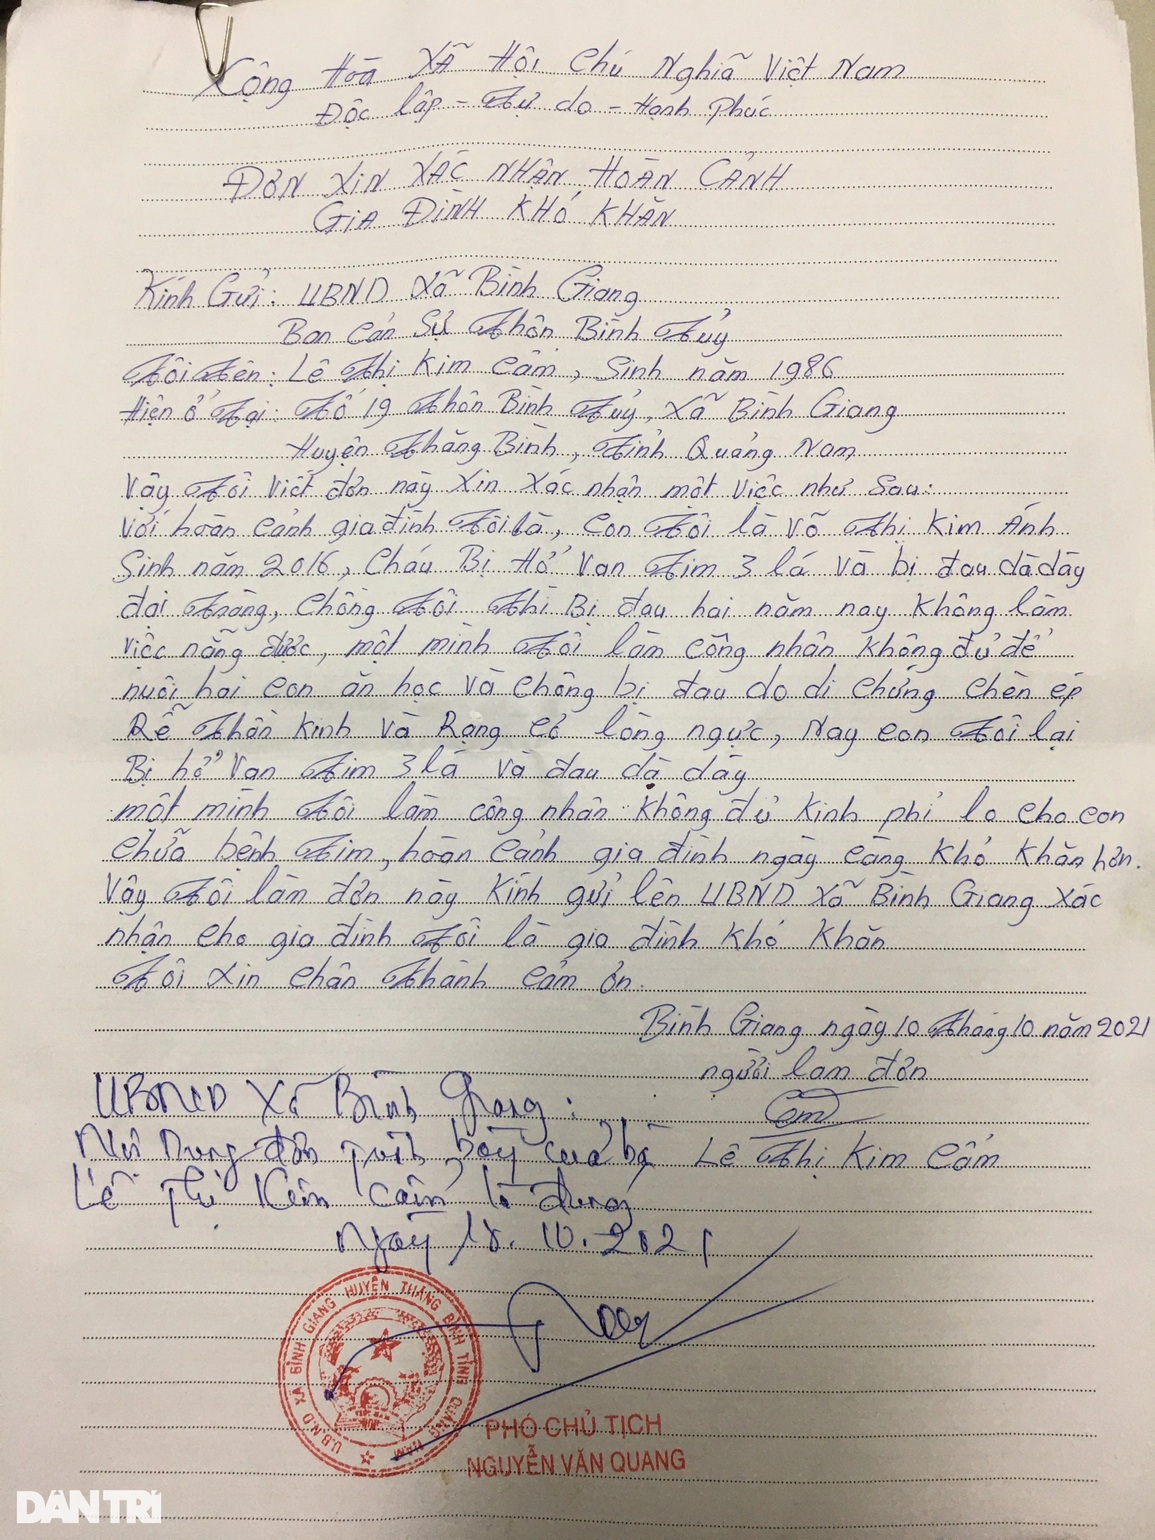 Cộng Hòa Xã Hội Chủ Nghĩa Việt Nam
Độc lập - Tự do - Hạnh Phúc
ĐƠN XIN XÁC NHẬN HOÀN CẢNH
GIA ĐÌNH KHÓ KHĂN
Kính Gửi: UBND Xã Bình Giang
Ban Cán Sự Thôn Bình Túy
Tôi Tên: Lê Thị Kim Cẩm, Sinh năm 1986
Hiện ở Tại: Tổ 19 Thôn Bình Túy, Xã Bình Giang
Huyện Thăng Bình, Tỉnh Quảng Nam
Vậy Tôi Viết đơn này Xin Xác nhận một việc như Sau:
Với hoàn cảnh gia đình Tôi là, Con Tôi là Võ Thị Kim Ánh
Sinh năm 2016, Cháu Bị Hở Van Tim 3 lá Và bị đau dà dày
đại Tràng, Chồng Tôi Thì Bị đau hai năm nay Không làm
việc nặng được, một mình Tôi làm công nhân không đủ để
nuôi hai con ăn học và chồng bị đau do di chứng chèn ép
Rễ Thần Kinh Và Rạng cổ lòng ngực, Nay con Tôi lại
Bị hở Van Tim 3 lá và đau dạ dày
một mình Tôi làm công nhân không đủ kinh phí lo cho con
chữa bệnh Tim, hoàn cảnh gia đình ngày càng khó khăn hơn.
Vậy Tôi làm đơn này Kính gửi lên UBND Xã Bình Giang Xác
nhận cho gia đình Tôi là gia đình khó khăn
Tôi Xin chân Thành cảm ơn.
Bình Giang ngày 10 Tháng 10 năm 2021
người làm đơn
Cẩm
Lê Thị Kim Cẩm
UBND Xã Bình Giang:
Nội dung đơn trình bày của bà
Lê Thị Kim Cẩm là đúng
Ngày 18.10.2021
U.B.N.D XÃ BÌNH GIANG HUYỆN THĂNG BÌNH TỈNH QUẢNG NAM
PHÓ CHỦ TỊCH
NGUYỄN VĂN QUANG
DÂN TRÍ